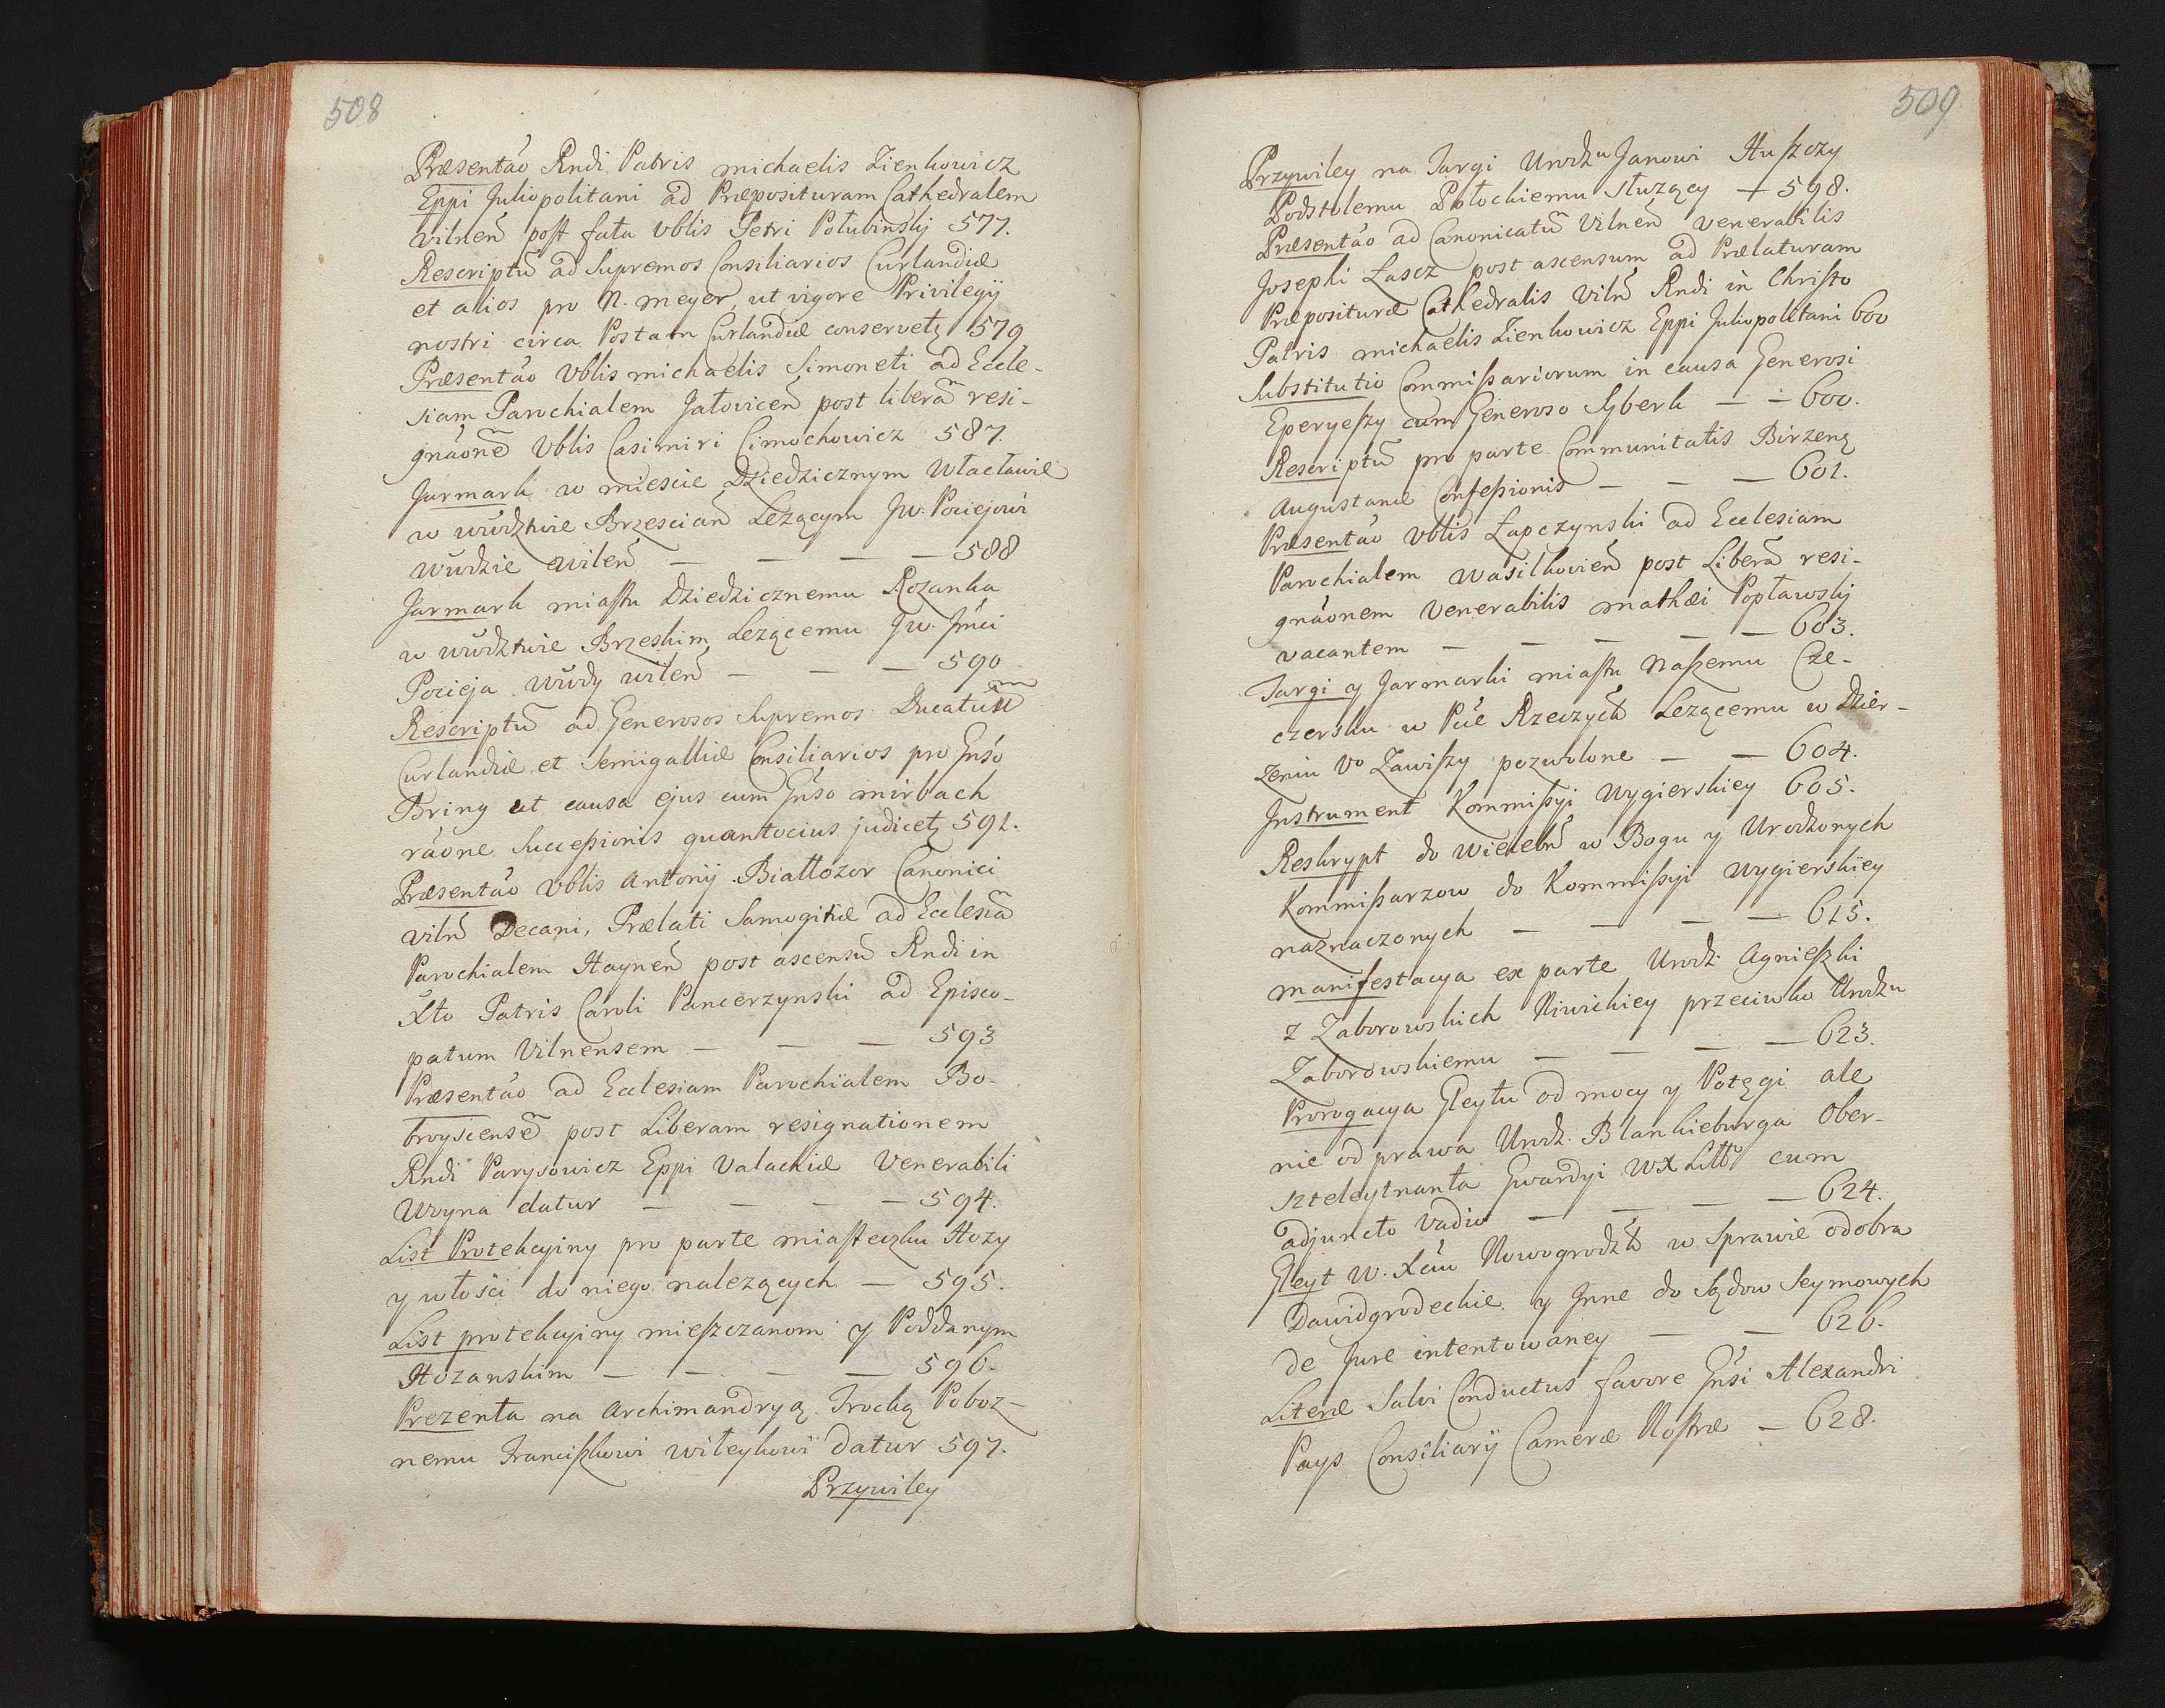 508
Præsentåo Rndi Patris michaelis Zienkowicz
Eppi Juliopolitani ad Præposituram Cathedralem
vilneñ post fata vblis Petri Połubinskÿ 577.
Rescriptũ ad Supremos Consiliarios Curlandiæ
et alios pro N. meyer, ut vigore Privilegÿ
nostri circa Postam Curlandiæ conservetꝫ 579
Præsentåo Vblis michaelis Simoneti ad Eccle-
siam Parochialem Jałoviceñ post liberã resi-
gnåonẽ Vblis Casimiri Cimochowicz 587.
Jarmark w miescie Dziedzicznym Włacławie
w wudztwie Brzesciañ Lezącym Jw. Pociejowi
wudzie wileñ — — — — 588
Jarmark miastu dziedzicznemu Rozanka
w wudztwie Brzeskim Lezącemu Jw. Jmci
Pocieja wudy wileñ — — — 590
Rescriptũ ad Generosos Supremos Ducatuũ
Curlandiæ et Semigalliæ Consiliarios pro Gnso
Bring ut causa ejus cum Gnso mirbach
råone Successionis quantocius judicetꝫ 591.
Præsentåo vblis Antonÿ Biallozor Canonici
vilñ Decani, Prælati Samogitiæ ad Ecclesiã
Parochialem Hayneñ post ascensũ Rndi in
Xto Patris Caroli Pancerzynski ad Episco-
patum Vilnensem — — — 593
Præsentåo ad Ecclesiam Parochialem Bo-
broyscensẽ post Liberam resignationem
Rndi Parysowicz Eppi Valachiæ Venerabili
Woyna datur — — — — 594.
List Protekcyiny pro parte miasteczku Hozy
y włości do niego nalezących — 595.
List protekcyiny mieszczanom y Poddanym
Hozanskim — — — — 596.
Prezenta na Archimandryą Trocką Poboz-
nemu Franciszkowi witeykowi datur 597.
Przywiley
509
Przywiley na Targi Urodzu Janowi Huszczy
Podstolemu Połockiemu słuzący + 598.
Præsentåo ad Canonicatũ Vilneñ venerabilis
Josephi Łascz post ascensum ad Prælaturam
Præpositure Cathedralis Vilñ Rndi in Christo
Patris michaelis Zienkowicz Eppi Juliopolitani 600
Substitutio Commissariorum in causa Generosi
Eperyeszy cum Generoso Syberk — — 600.
Rescriptũ pro parte Communitatis Birzenꝫ
Augustanæ Confessionis — — — 601.
Præsentåo Vblis Łapczynski ad Ecclesiam
Parochialem wasilkovieñ post Liberã resi-
gnåonem Venerabilis mathæi Popławskÿ
vacantem — — — — — 603.
Targi y Jarmarki miastu Naszemu Cze-
czersku w Pcie Rzeczyckᵐ Lezącemu w Dzier-
zeniu Vo Zawiszy pozwolone — — 604.
Instrument Kommissyi Wygierskiey 605.
Reskrypt do wielebñ w Bogu y Urodzonych
Kommissarzow do Kommissyi Wygierskiey
naznaczonych — — — — 615.
manifestacya ex parte Urodz. Agnieszki
z Zaborowskich Niwickiey przeciwko Urodzu
Zaborowskiemu — — — — 623.
Prorogacya Gleytu od mocy y Potęgi ale
nie od prawa Urodz. Blankieburga Ober-
szteleytnanta Gwardyi WX Litto cum
adjuncto vadio — — — — 624.
Gleyt W. Xciu Nowogrodzk w Sprawie o dobra
Dawidgrodeckie y Inne do Sądow Seymowych
de Jure intentowaney — — 626.
Literæ Salvi Conductus favore Gnsi Alexandri
Pays Consiliarÿ Cameræ Nostræ — 628.